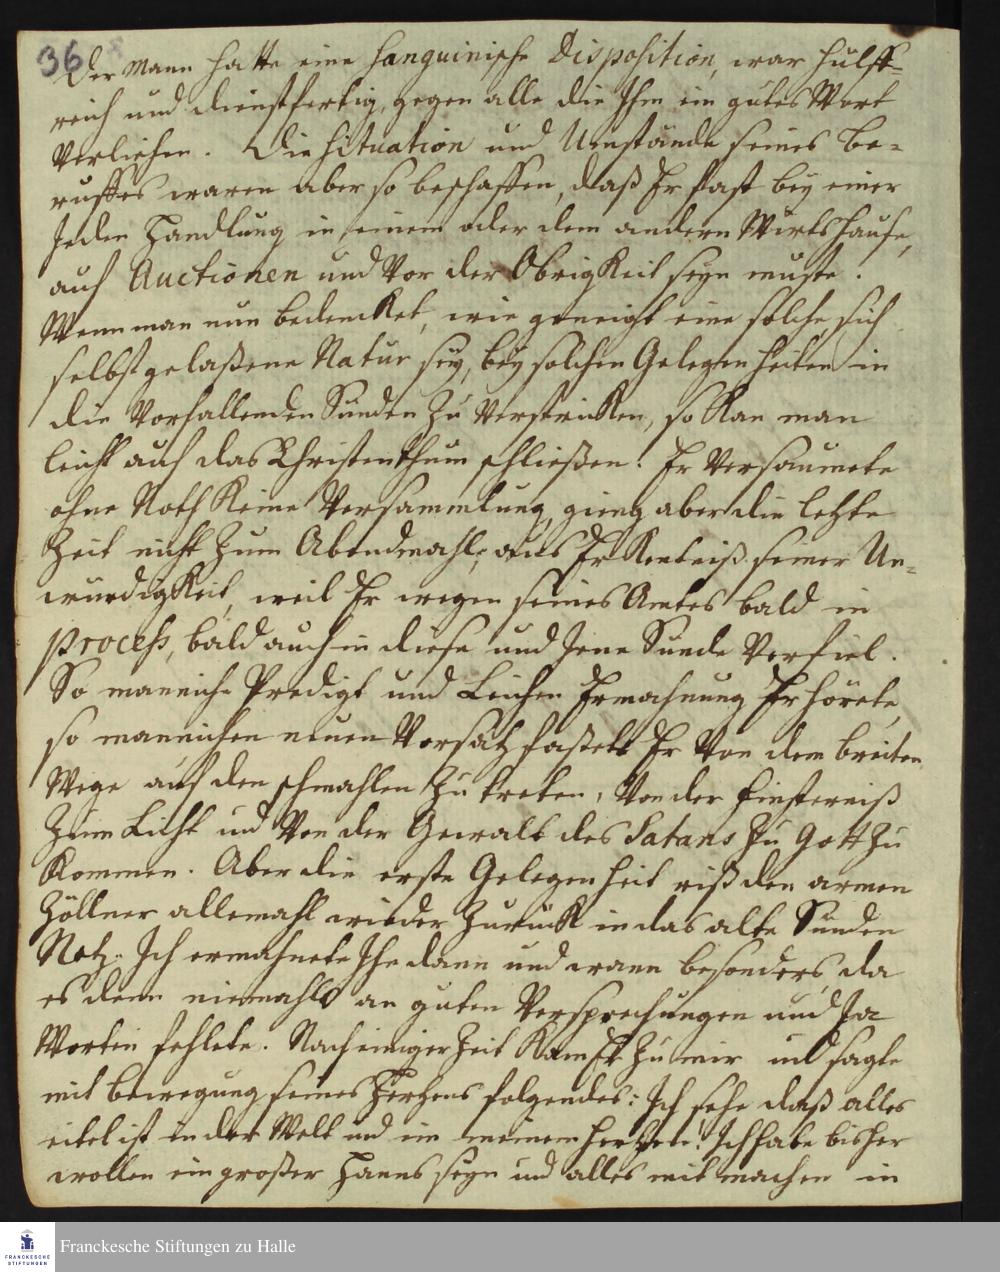 36
Der Mann hatte eine sanguinische Disposition, war hülff-
reich und dienstfertig, gegen alle die Ihm ein gutes Wort
Verliehen. Die Situation und Umstände seines Be-
ruffes waren aber so beschaffen, daß Er fast bey einer
Jeden Handlung in einem oder dem andern Wirtshause,
auch Auctionen und Vor der Obrigkeit seyn muste.
Wenn man nun bedencket, wie geneigt eine solche sich
selbst gelaßene Natur sey, bey solchen Gelegenheiten in
die Vorfallenden Sünden Zu Verstricken, so kan man
leicht auf das Christenthum schließen. Er Versaumete
ohne Noth keine Versammlung, gieng aber die letzte
Zeit nicht Zum Abendmahl, aus Erkentniß seiner Un-
würdigkeit, weil Er wegen seines Amtes bald in
process, bald auch in diese und Jene Sünde Verfiel.
So manniche Predigt und Leichen Ermahnung Er hörete,
so mannichen neuen Vorsatz faßete Er Von dem breiten
Wege auf den schmahlen Zu treten, Von der Finsterniß
Zum Licht und Von der Gewalt des Satans Zu Gott Zu
kommen. Aber die erste Gelegenheit riß den armen
Zöllner allemahl wieder Zurück in das alte Sünden
Netz. Ich ermahnete Ihn dann und wann besonders, da
es denn niemahls an guten Versprechungen und Ja
Worten fehlete. Nach einiger Zeit kam Er Zu mir und sagte
mit bewegung seines Hertzens folgendes: Ich sehe daß alles
eitel ist in der Welt und in meinem Hertzen! Ich habe bisher
wollen ein großer Hanns seyn und alles mit machen in
Franckesche Stiftungen zu Halle
FRANCKESCHE
STIFTUNGEN